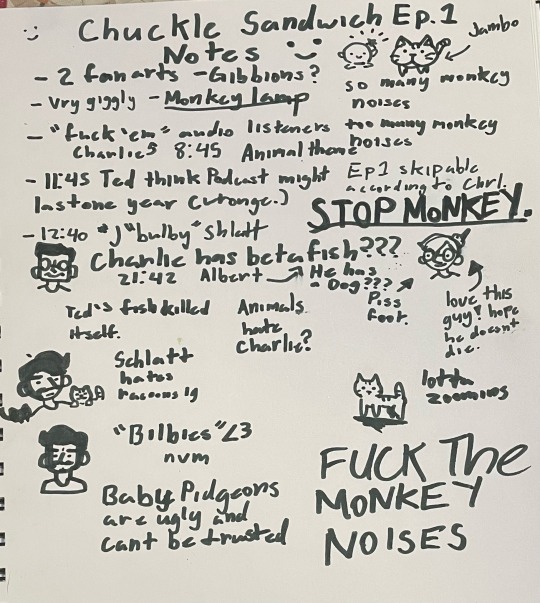 Chuckle Sandwich Ep.1
Notes
Jambo
- 2 fan arts - Gibbions?
- Vry giggly - Monkey lamp
so many monkey
noises
- "fuck 'em" audio listeners
Charlie 8:45 Animal theme
too many monkey
noises
- 11:45 Ted think Podcast might
last one year (wronge.)
Ep1 skipable
according to Chrl.
STOP MONKEY.
- 12:40 "J "bulby" Shlatt
Charlie has beta fish???
21:42 Albert
He has
a Dog???
Piss
foot.
love this
guy! hope
he doesnt
die.
Ted's fish killed
itself.
Animals
hate
Charlie?
Schlatt
hates
racoons ig
lotta
zoomins
"Bilbies" <3
nvm
Baby Pidgeons
are ugly and
cant be trusted
FUCK The
MONKEY
NOISES